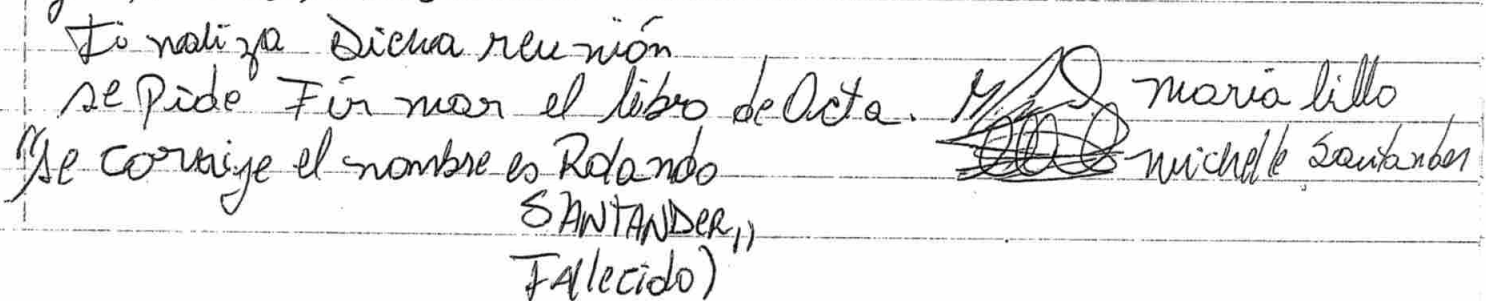 Finaliza Dicha reunión
se Pide Firmar el libro de Acta. maria lillo
"se corrije el nombre es Rolando michelle Santander
SANTANDER,"
Fallecido)